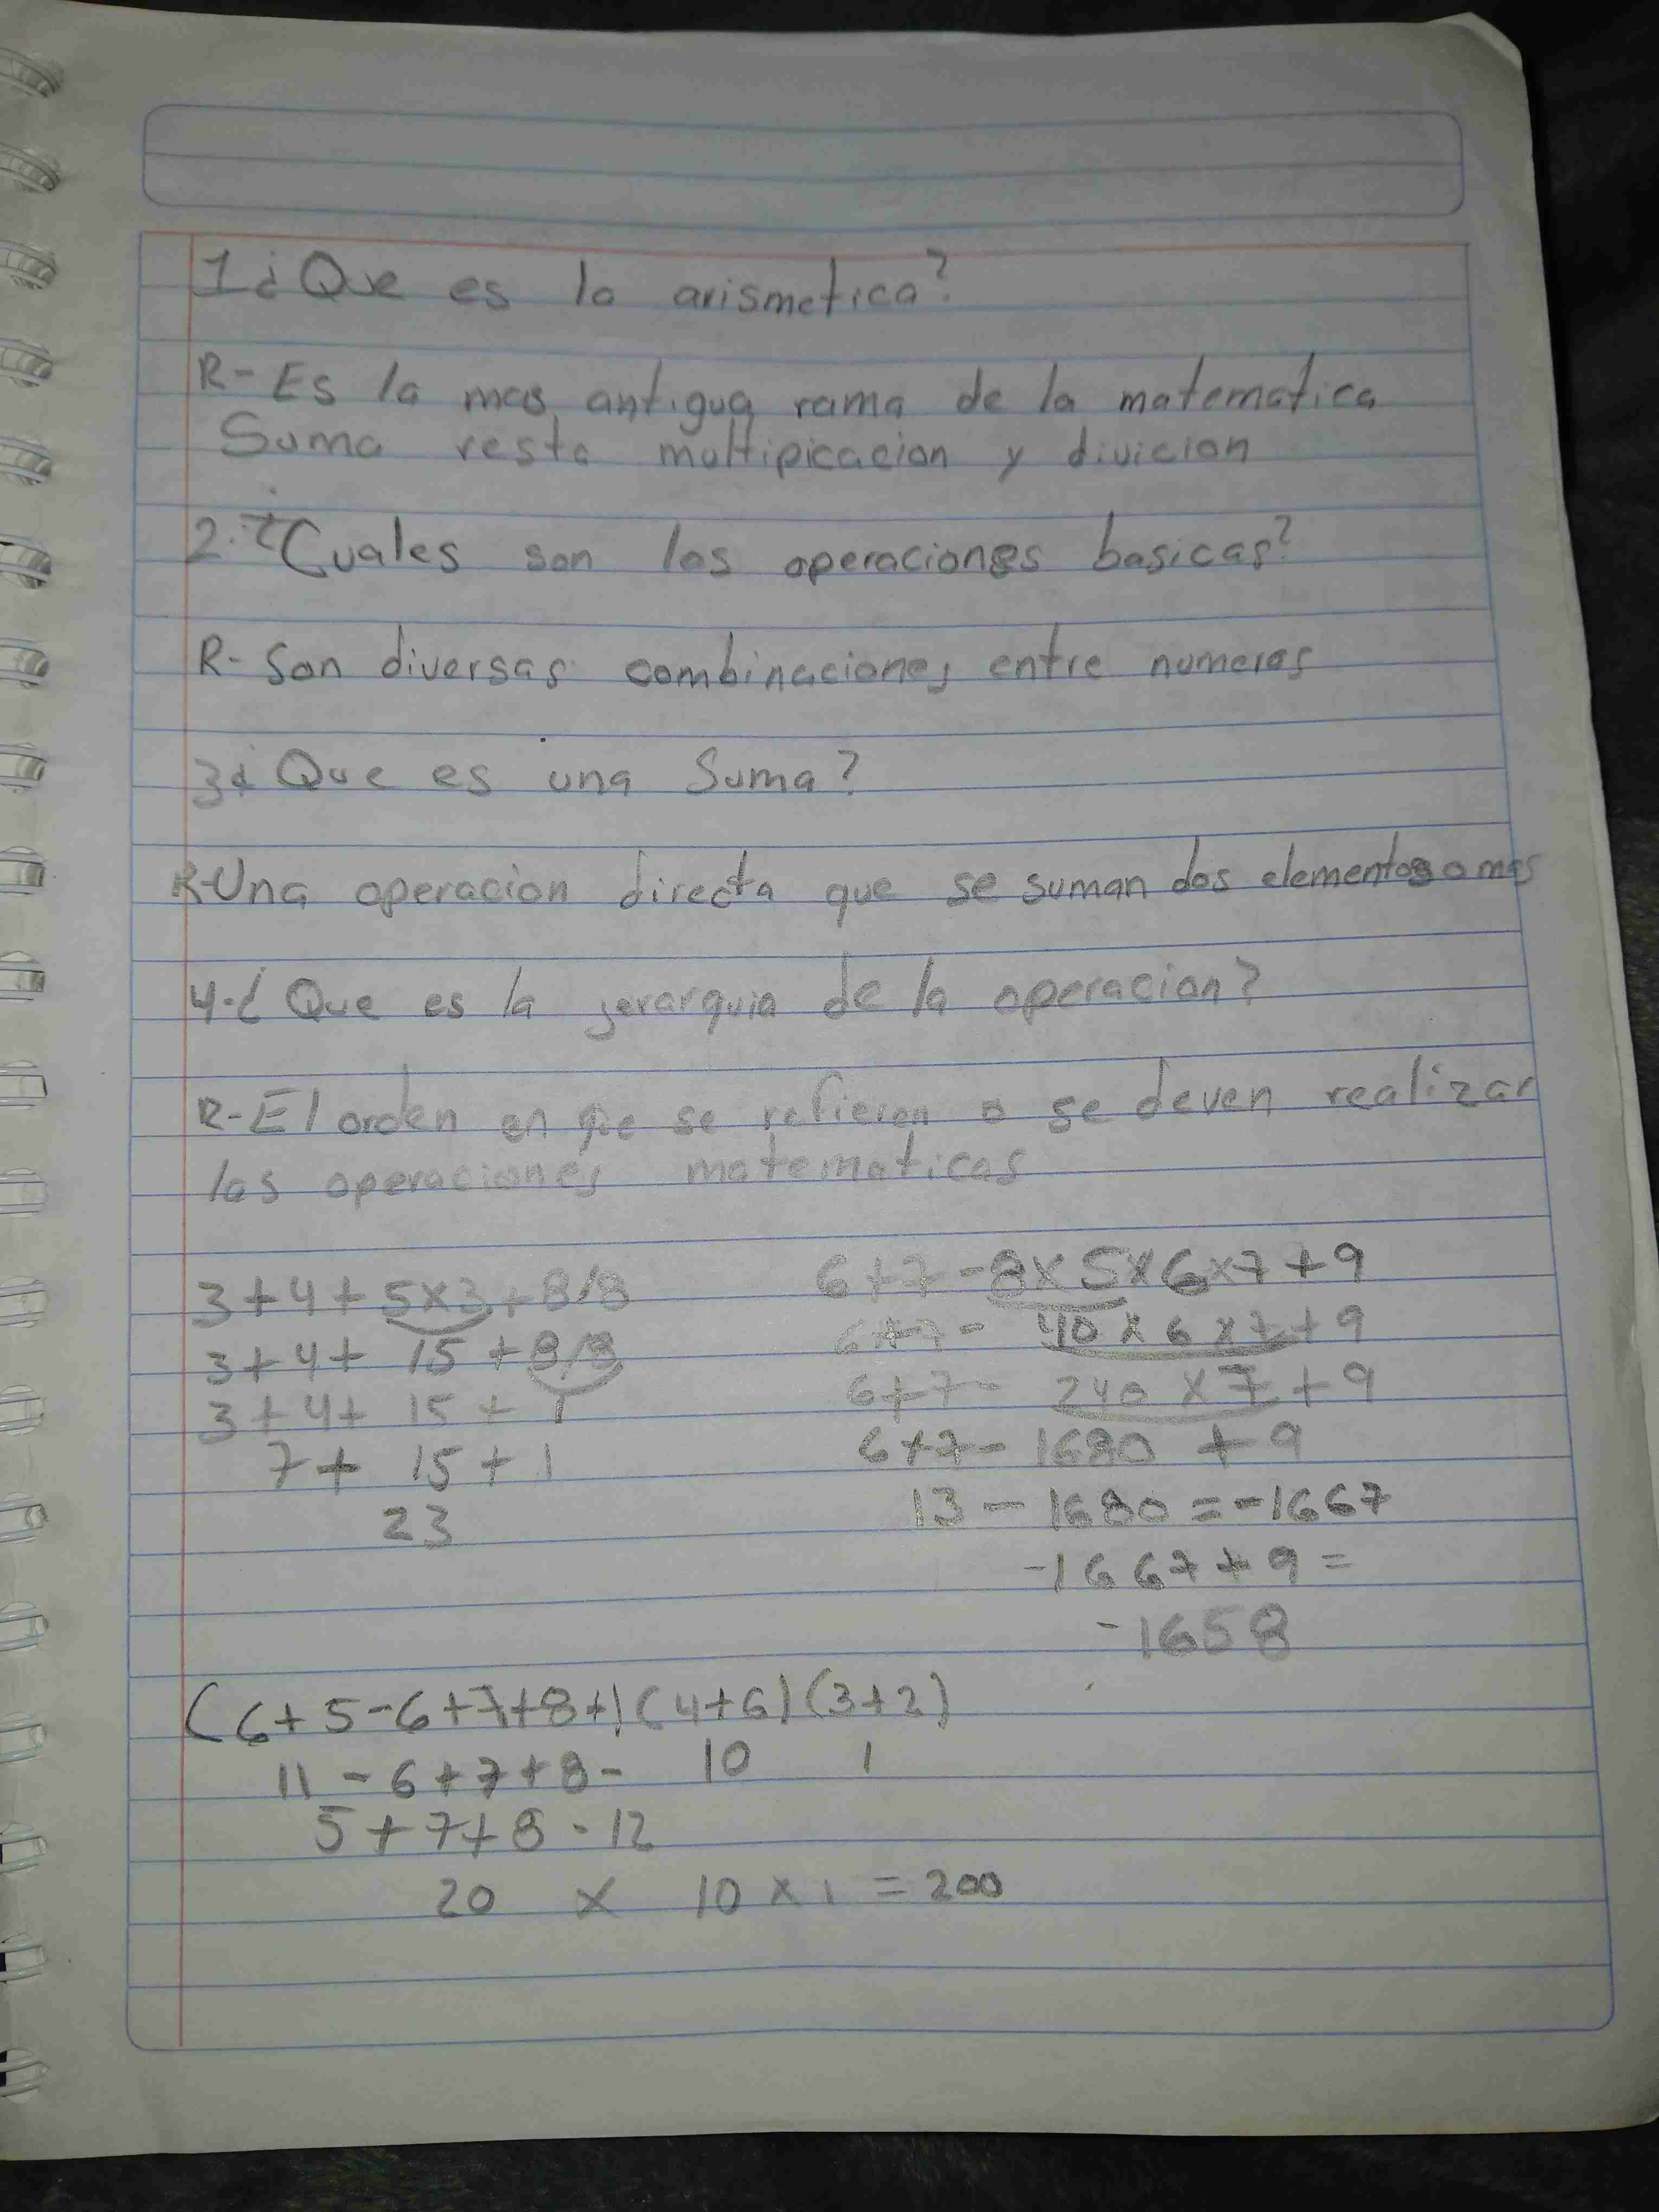 1¿Que es la arismetica?
R- Es la mas antigua rama de la matematica
Suma resta multipicacion y divicion
2.¿Cuales son las operaciones basicas?
R- Son diversas combinaciones entre numeros
3¿Que es una Suma?
R-Una operacion directa que se suman dos elementos o mas
4-¿Que es la jerarquia de la operacion?
R-El orden en que se refieren o se deven realizar
las operaciones matematicas
3+4+5x3+8/8
3+4+ 15 +8/8
3+4+ 15 + 1
7+ 15 + 1
23
6+7-8x5x6x7+9
6+7- 40 x 6 x 7 + 9
6+7- 240 x 7 + 9
6+7- 1680 + 9
13 - 1680 = -1667
-1667+9=
-1658
(6+5-6+7+8+)(4+6)(3+2)
11 - 6+7+8- 10 1
5+7+8-12
20 x 10 x 1 = 200